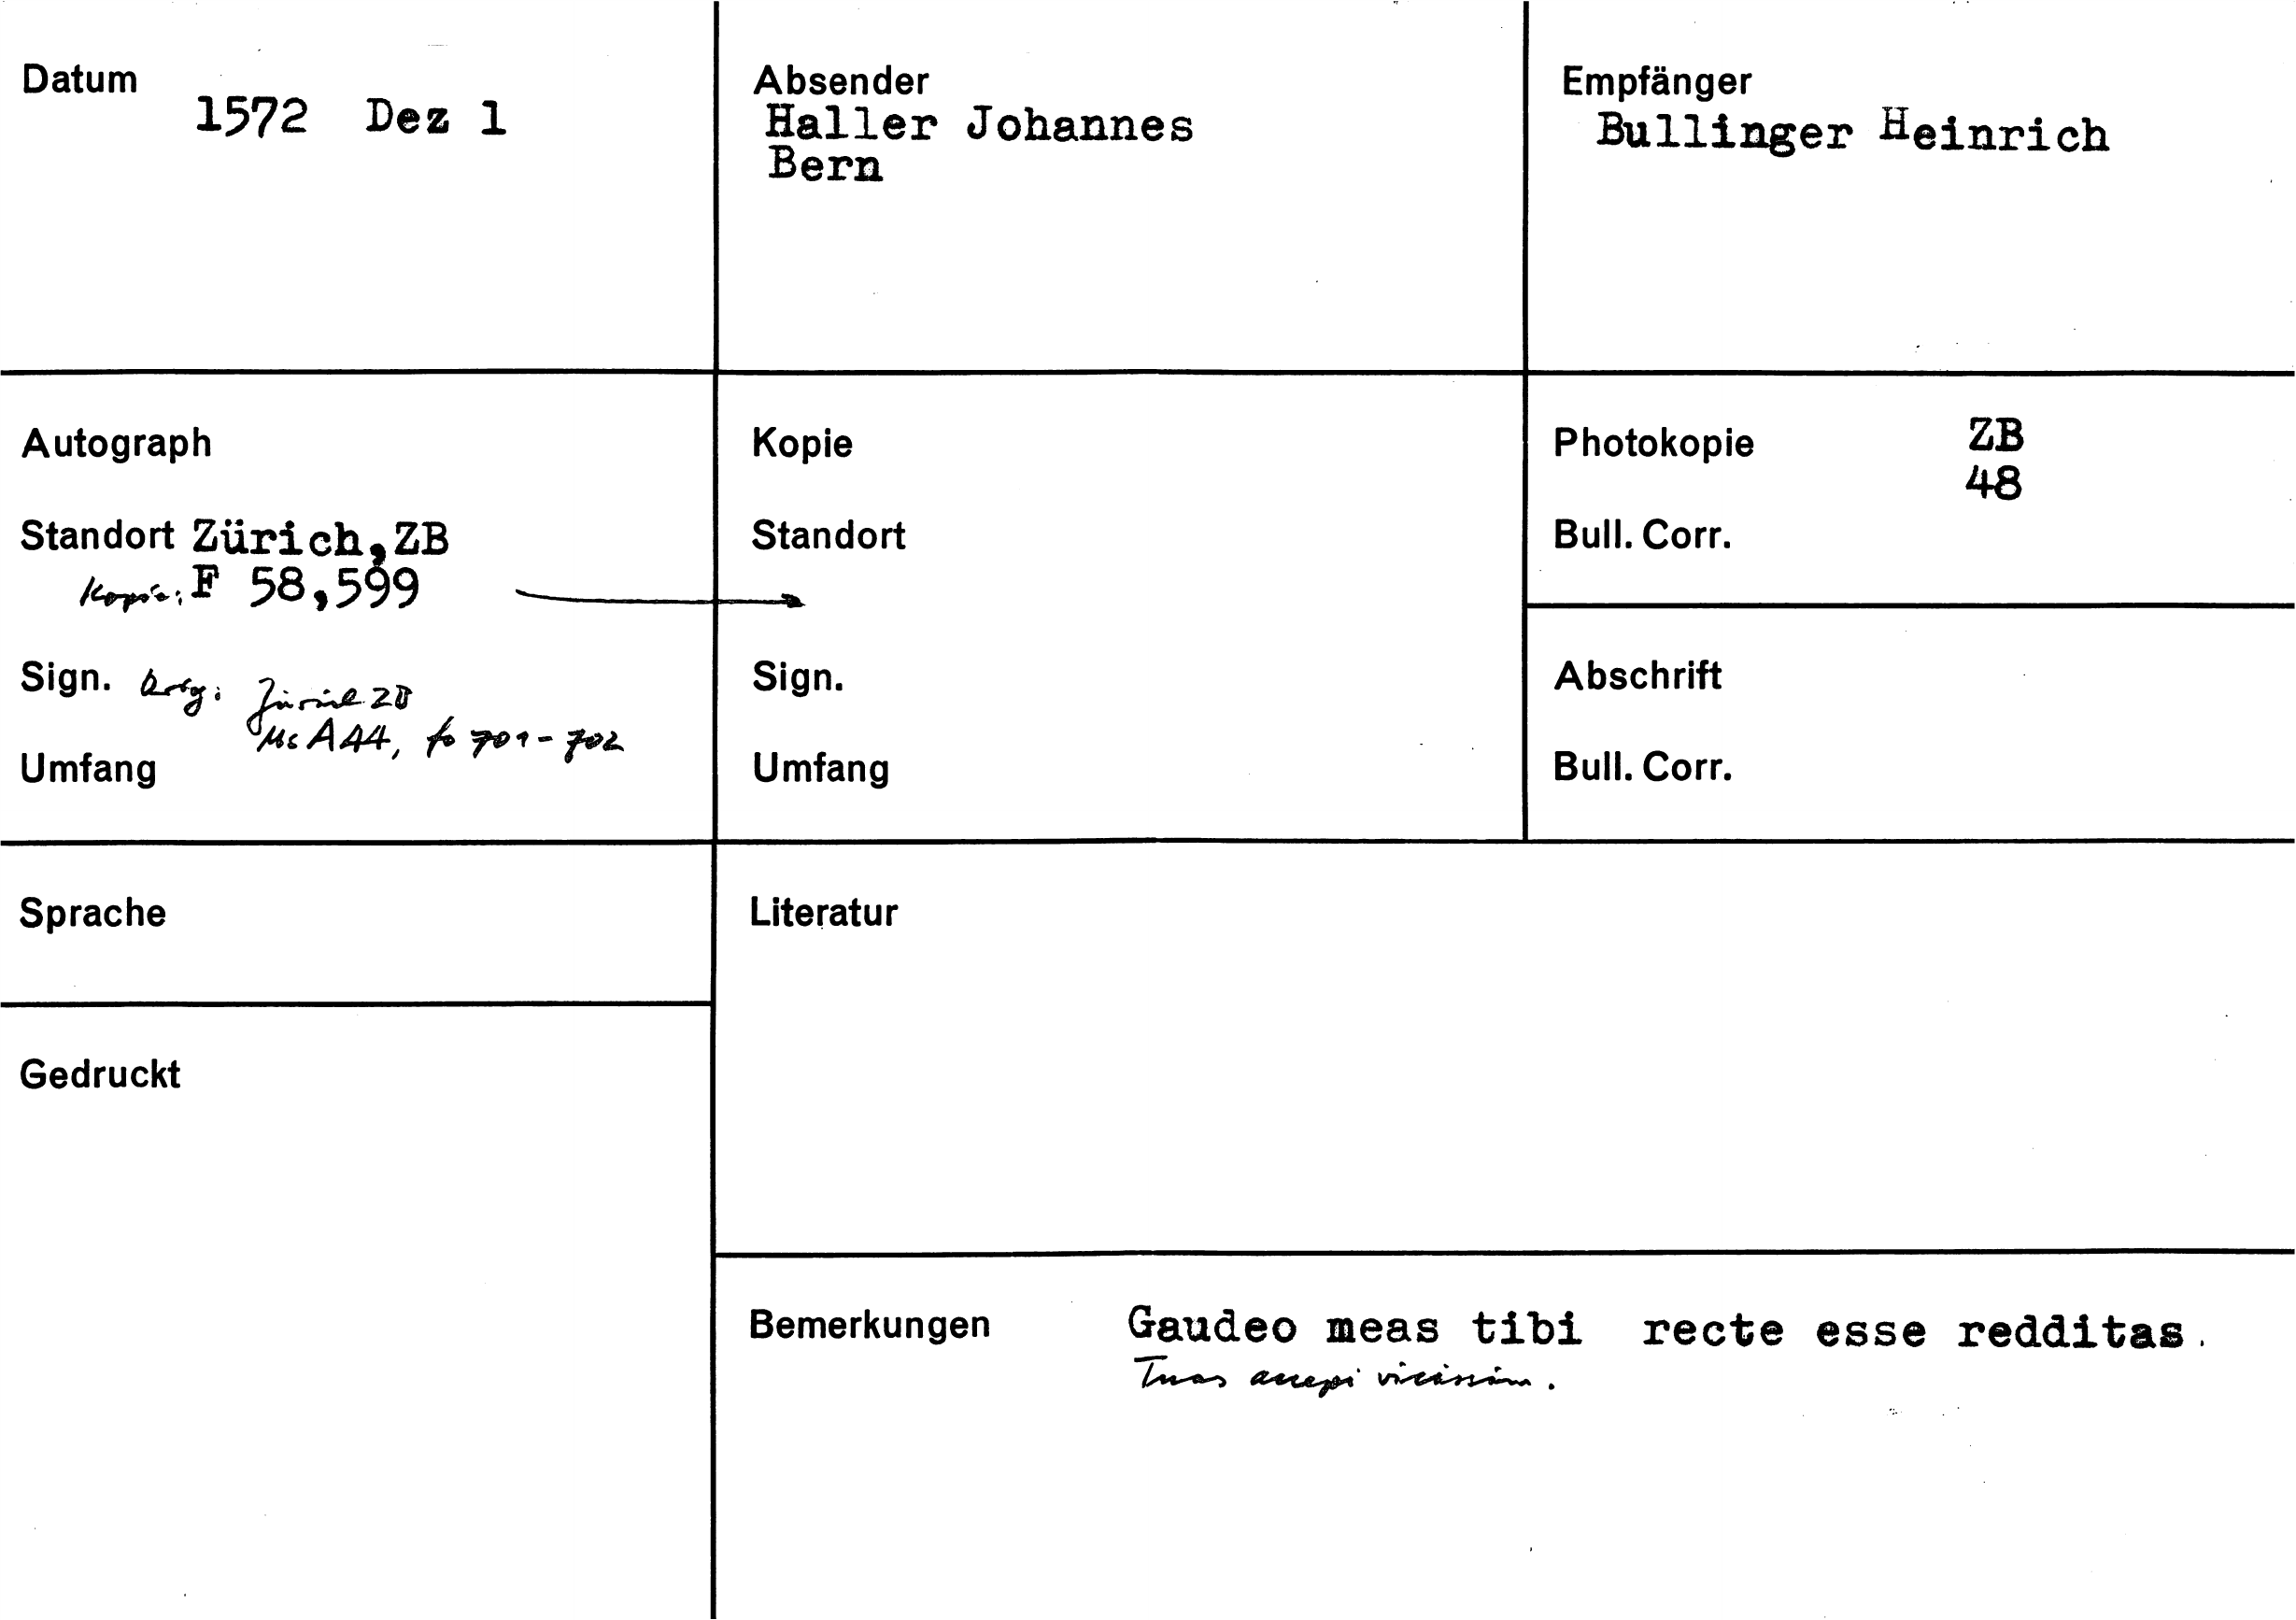 Datum
1572 Dez 1
Absender
Haller Johannes
Bern
Empfänger
Bullinger Heinrich
Autograph
Standort Zürich, ZB
Kopie: F 58,599
Sign. Orig: Zürich ZB
Ms A 44, fo 701-702
Umfang
Kopie
Standort
Sign.
Umfang
Photokopie ZB
48
Bull. Corr.
Abschrift
Bull. Corr.
Sprache
Gedruckt
Literatur
Bemerkungen Gaudeo meas tibi recte esse redditas.
Tuas accepi vicissim.